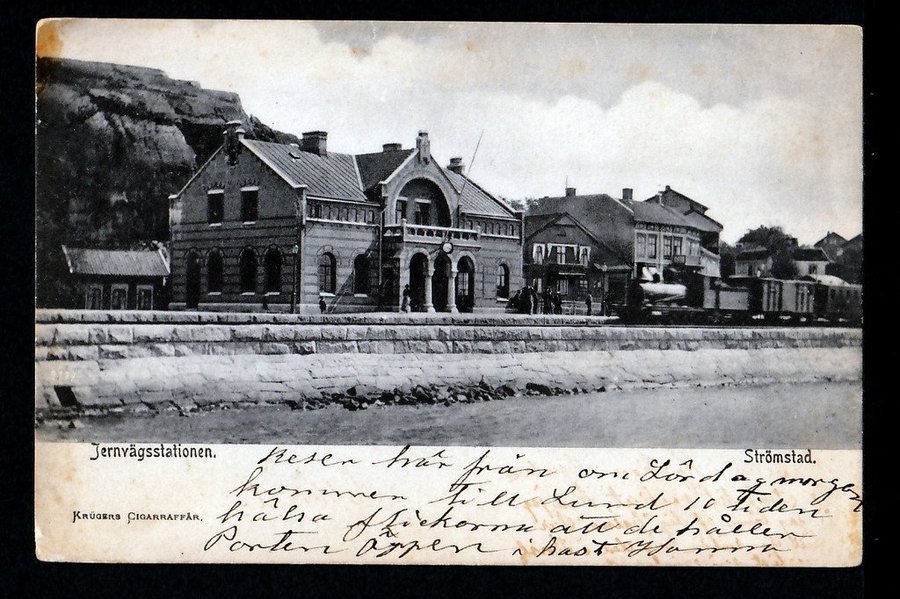 Jernvägsstationen.
Strömstad.
Krügers Cigarraffär.
Reser här från om Lördag morgon
kommer till Lund 10 tiden
hälsa flickorna att de håller
Porten öppen i hast Hanna